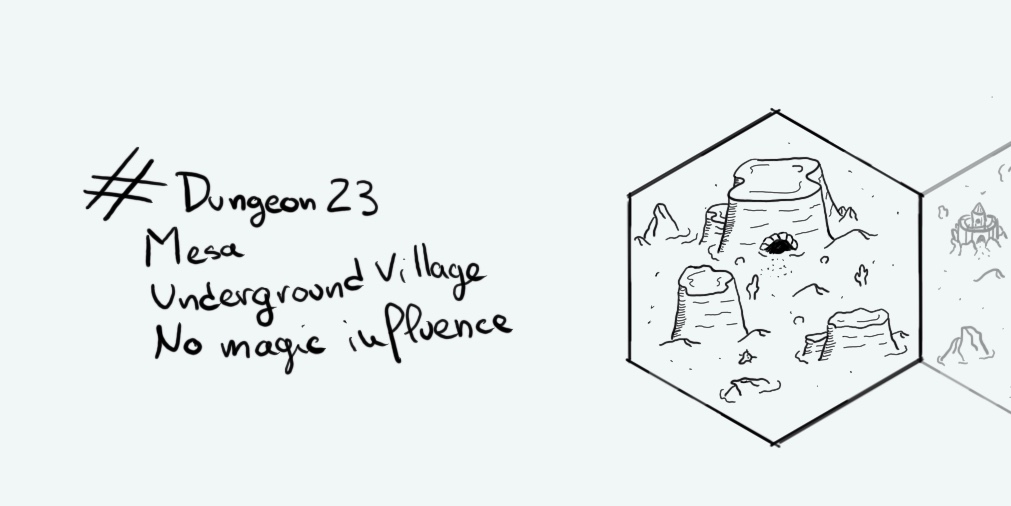 # Dungeon 23
Mesa
Underground Village
No magic influence